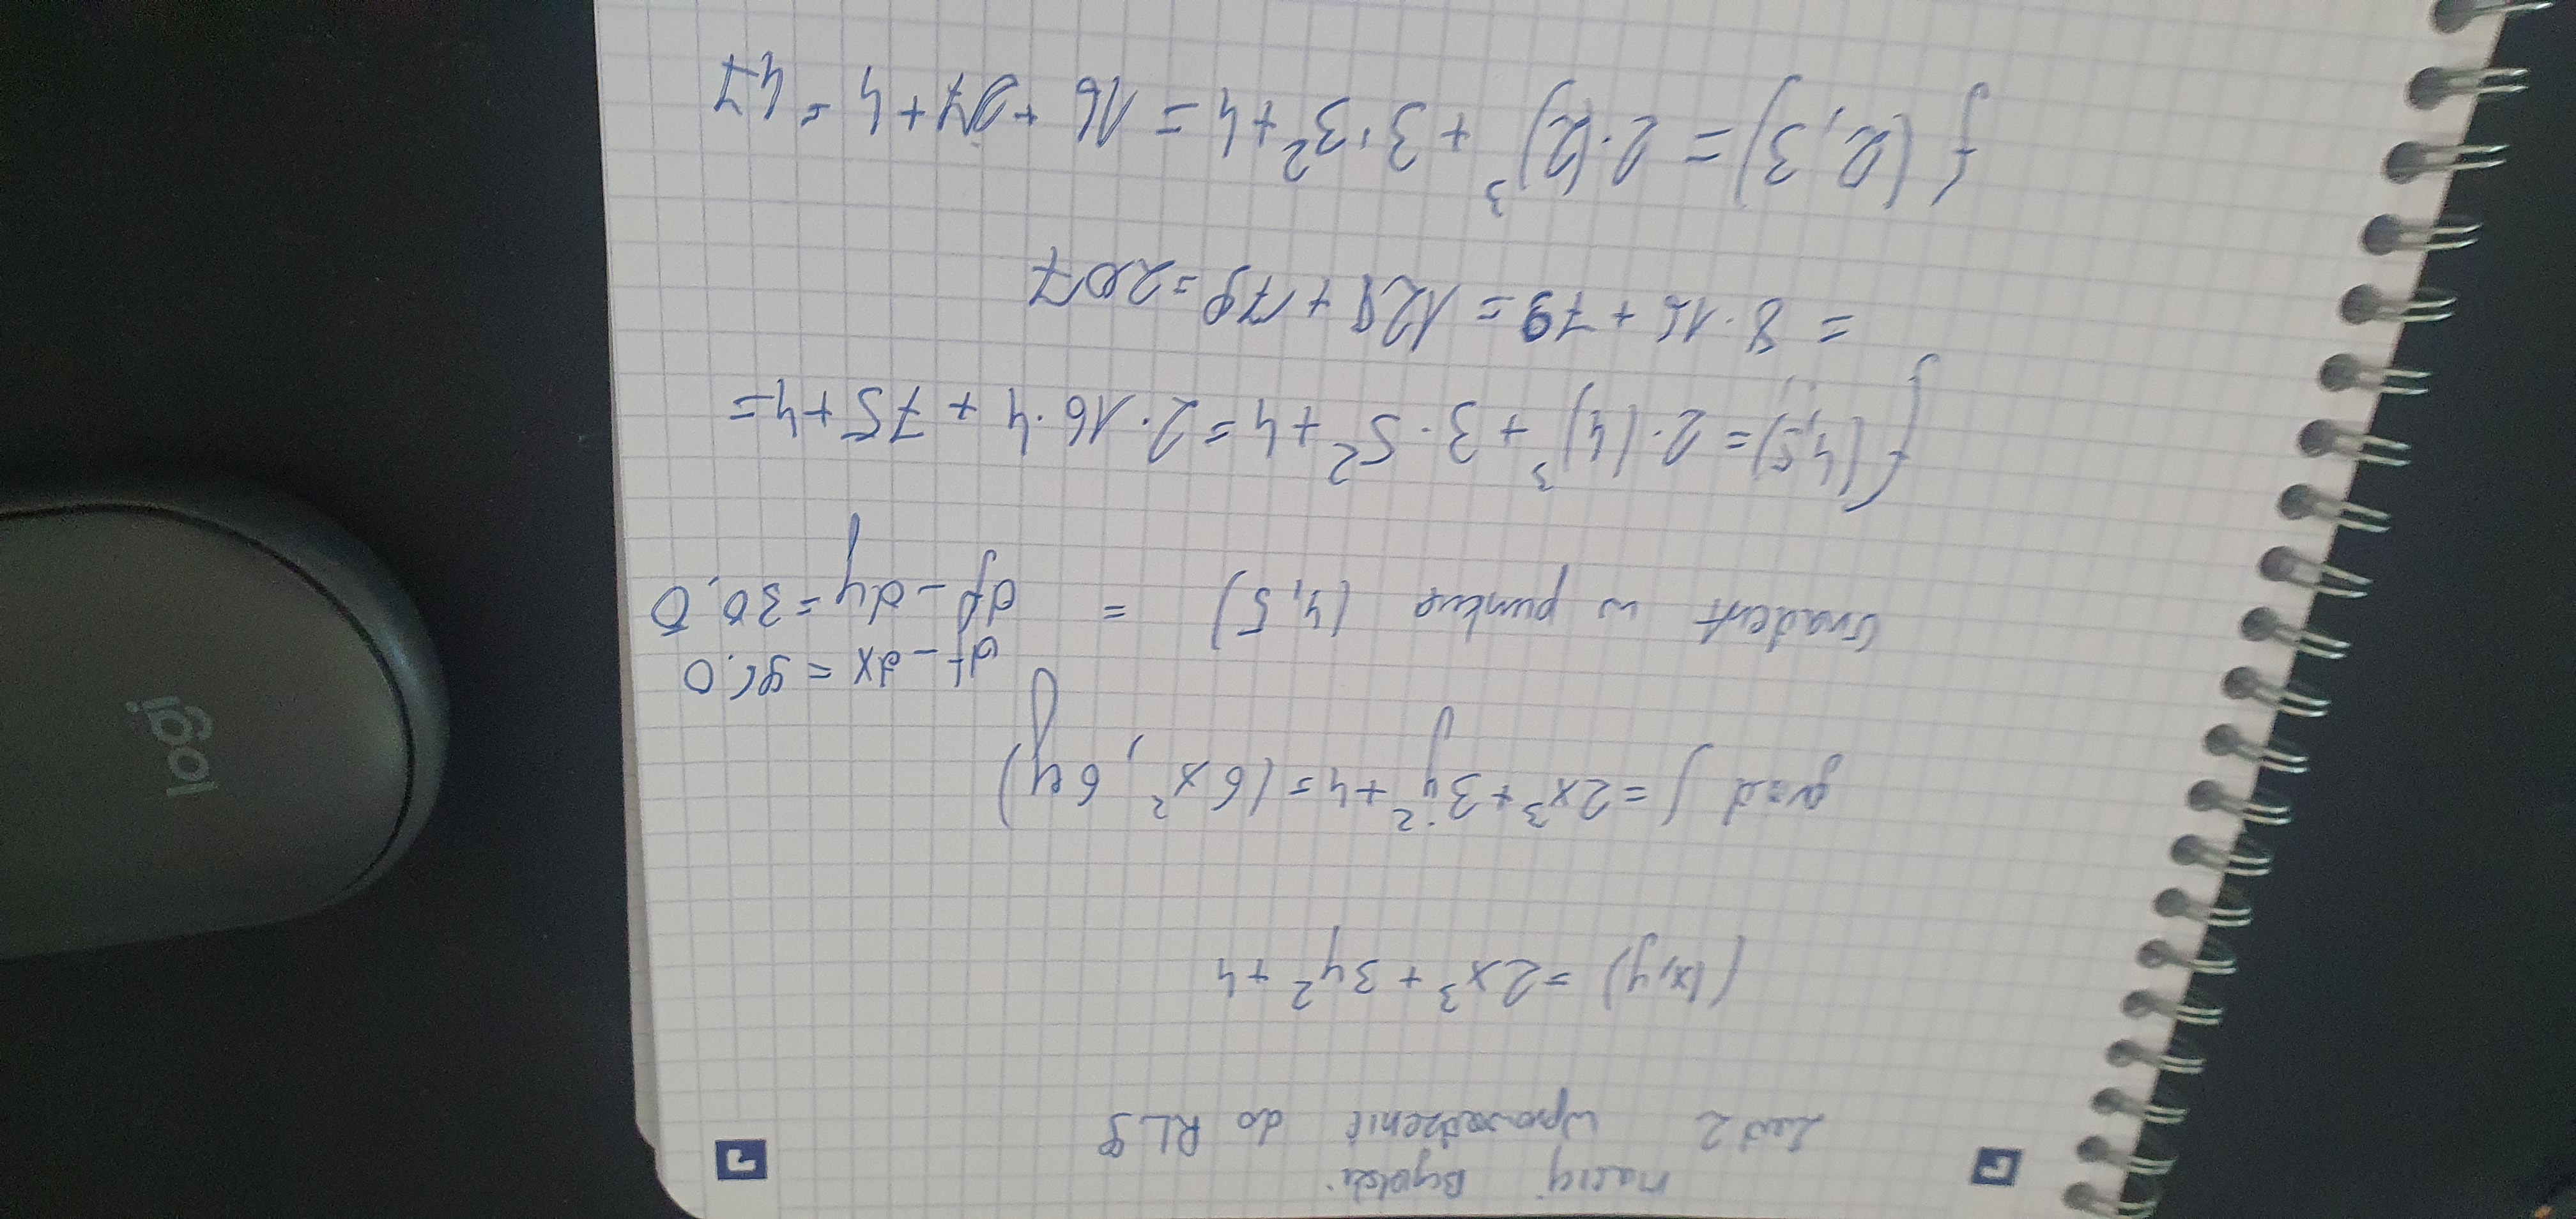 logi
Maciej Bydński
Zad 2 wprowadzenie do RL_9
f(x,y) = 2x³ + 3y² + 4
grad f = 2x³ + 3y² + 4 = (6x², 6y)
df_dx = 96.0
Gradent w punkcie (4,5) = df_dy = 30.0
f(4,5) = 2·(4)³ + 3·5² + 4 = 2·16·4 + 75 + 4 =
= 8·16 + 79 = 128 + 79 = 207
f(2,3) = 2·(2)³ + 3·3² + 4 = 16 + 27 + 4 = 47